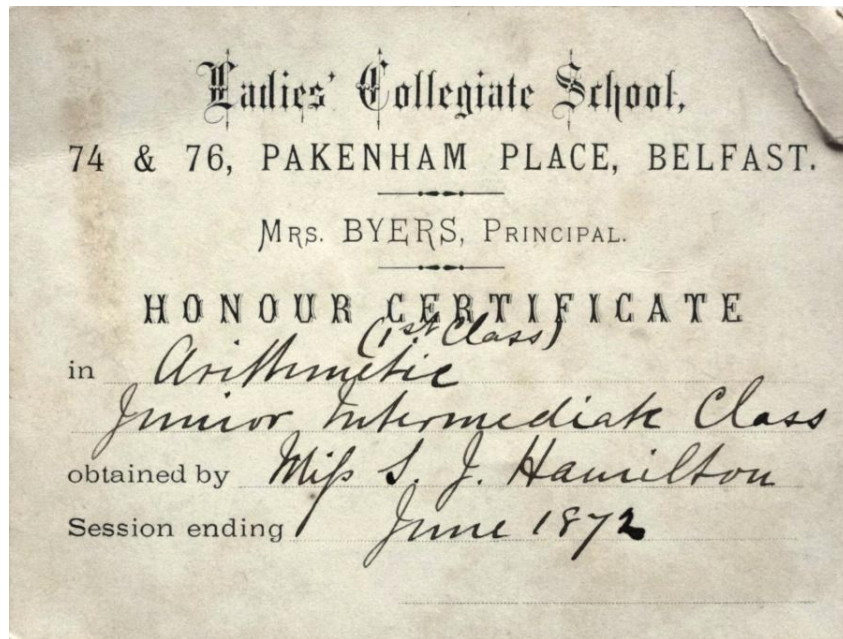 Ladies' Collegiate School,
74 & 76, PAKENHAM PLACE, BELFAST.
MRS. BYERS, PRINCIPAL.
HONOUR CERTIFICATE
(1st Class)
in Arithmetic
Junior Intermediate Class
obtained by Miss S. J. Hamilton
Session ending June 1872